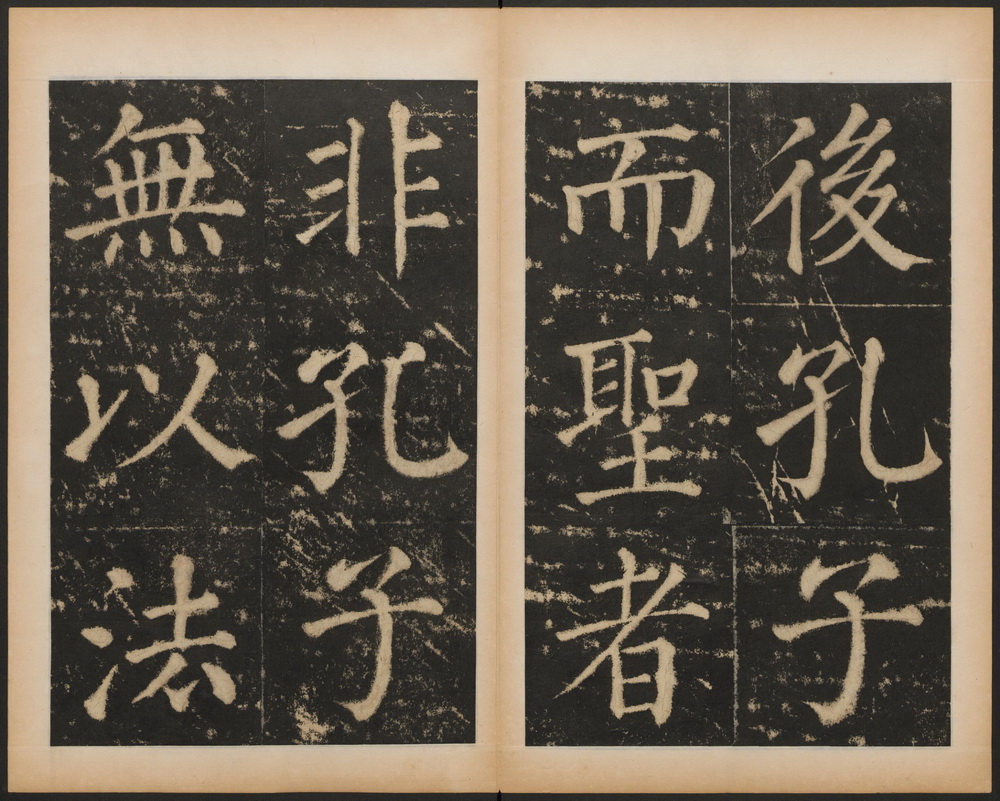 後孔子
而聖者
非孔子
無以法